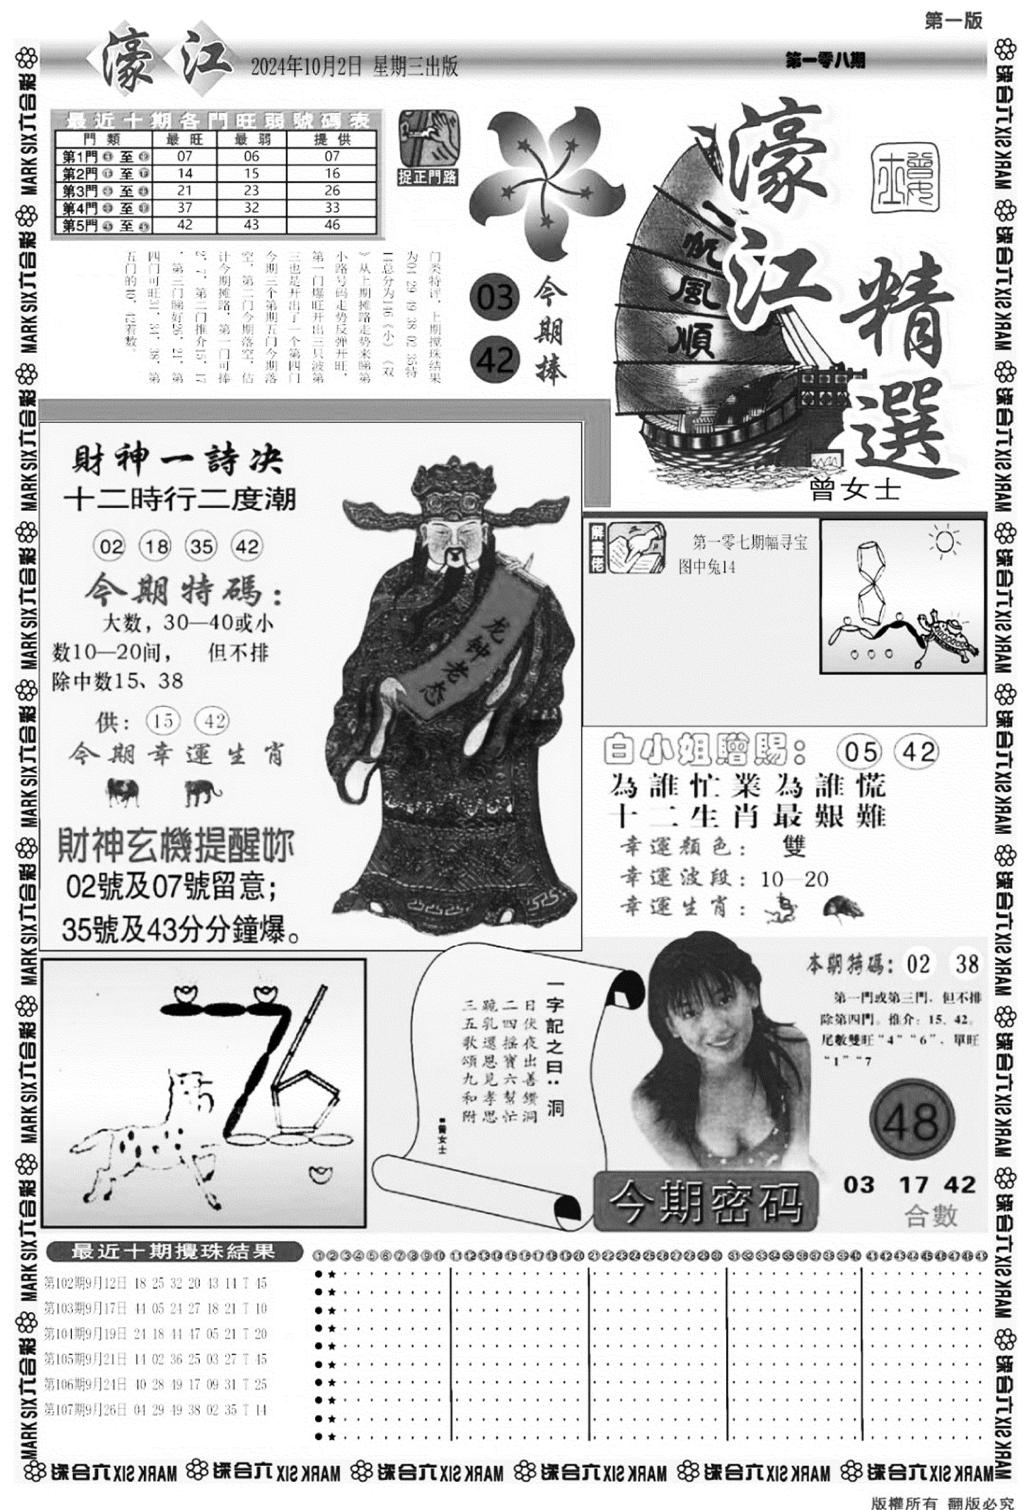 第一版
濠江
2024年10月2日 星期三出版
第一零八期
最近十期各門旺弱號碼表
門類 最旺 最弱 提供
第1門 至 07 06 07
第2門 至 14 15 16
第3門 至 21 23 26
第4門 至 37 32 33
第5門 至 42 43 46
捉正門路
门类特评，上期搅珠结果
小路号码走势反弹开旺，
第一门爆旺开出三只波第
三也是开出了一个第四门
今期三个第期五门今期落
空，第二门今期落空，估
计今期摊路，第一门可捧
03
42
今期捧
一帆風順
濠江精選
曾女士
財神一詩决
十二時行二度潮
02 18 35 42
今期特碼：
大数，30—40或小
数10—20间， 但不排
除中数15、38
供：15 42
今期幸運生肖
財神玄機提醒妳
02號及07號留意；
35號及43分分鐘爆。
龙钟老态
第一零七期幅寻宝
图中兔14
白小姐贈賜：05 42
為誰忙業為誰慌
十二生肖最艱難
幸運顏色： 雙
幸運波段：10—20
幸運生肖：
一字記之曰：洞
日伏夜出善鑽洞
二四摇寶六幫忙
跪乳還恩見孝思
三五歌頌九和附
■曾女士
本期特碼：02 38
第一門或第三門，但不排
除第四門。推介：15、42。
尾數雙旺“4”“6”，單旺
“1”“7
48
03 17 42
合數
今期密码
最近十期攪珠結果
第102期9月12日 18 25 32 20 43 14 T 45
第103期9月17日 44 05 24 27 18 21 T 10
第104期9月19日 24 18 44 47 05 21 T 20
第105期9月21日 14 02 36 25 03 27 T 45
第106期9月24日 40 28 49 17 09 31 T 25
第107期9月26日 04 29 49 38 02 35 T 14
MARK SIX 六合彩
版權所有 翻版必究